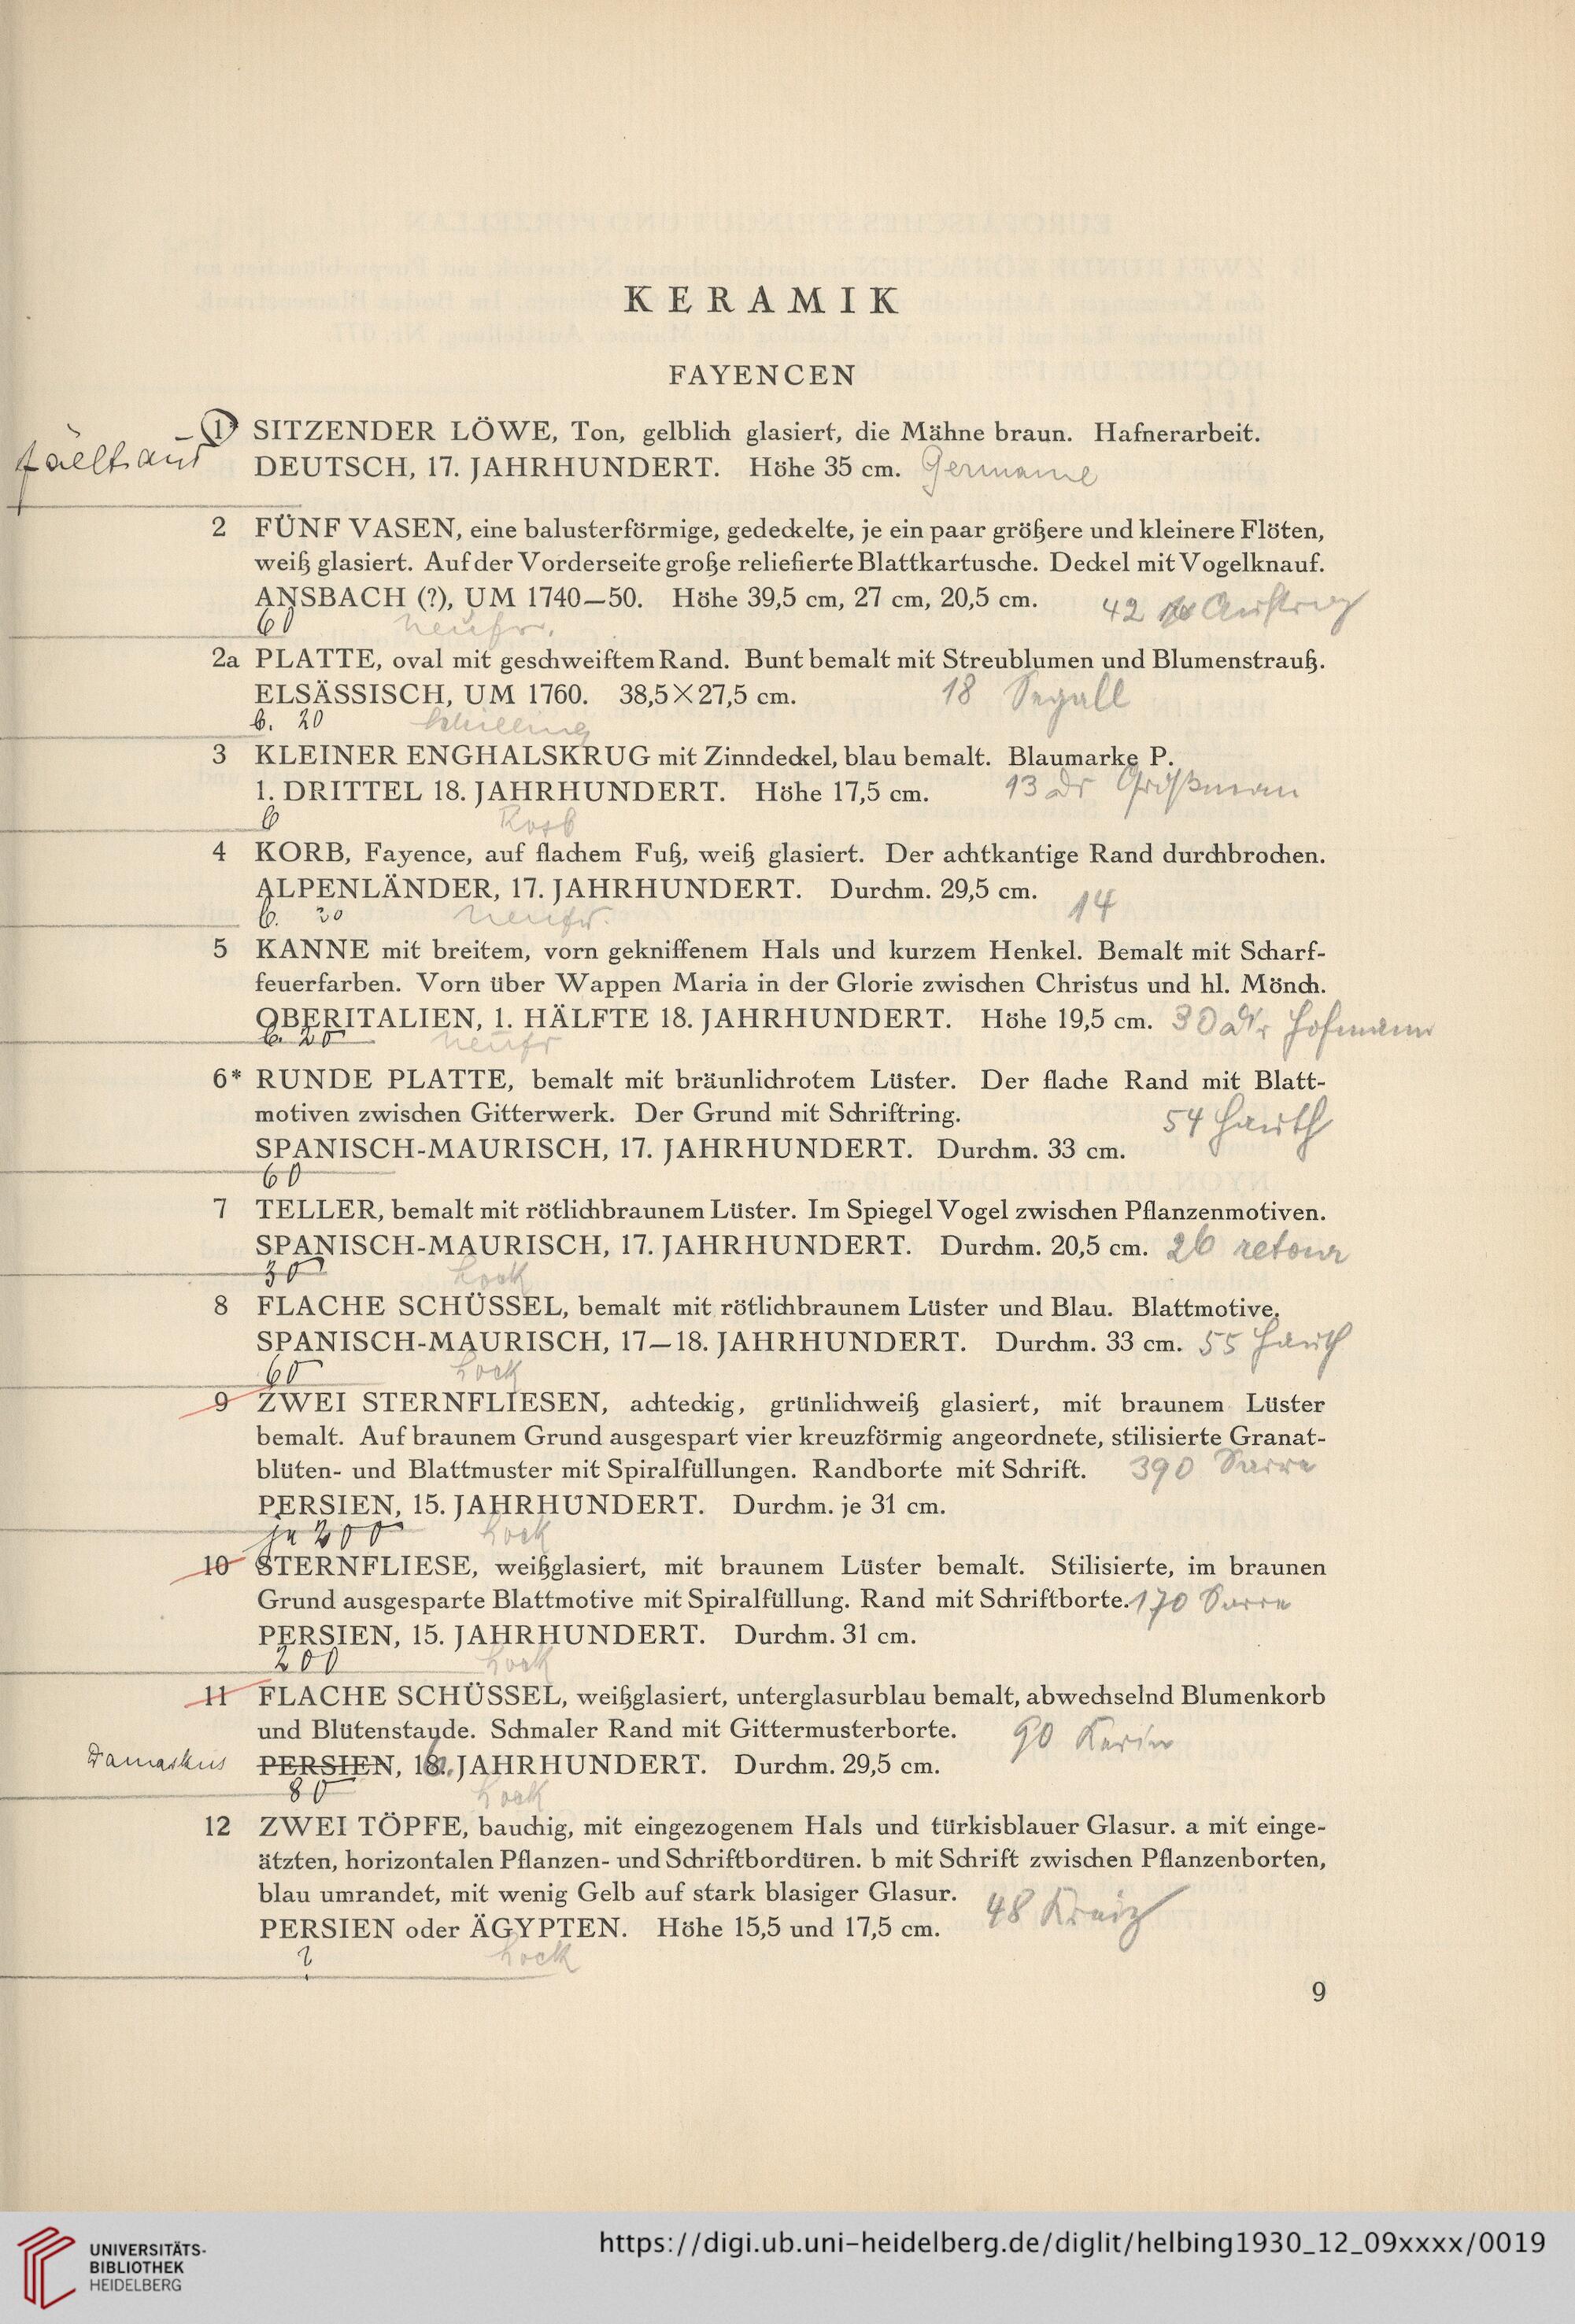 KERAMIK
FAYENCEN
1 SITZENDER LÖWE, Ton, gelblich glasiert, die Mähne braun. Hafnerarbeit.
fällt aus
DEUTSCH, 17. JAHRHUNDERT. Höhe 35 cm. Germaine
2 FÜNF VASEN, eine balusterförmige, gedeckelte, je ein paar größere und kleinere Flöten,
weiß glasiert. Auf der Vorderseite große reliefierte Blattkartusche. Deckel mit Vogelknauf.
ANSBACH (?), UM 1740—50. Höhe 39,5 cm, 27 cm, 20,5 cm. 42 Auftrag
60
2a PLATTE, oval mit geschweiftem Rand. Bunt bemalt mit Streublumen und Blumenstrauß.
ELSÄSSISCH, UM 1760. 38,5×27,5 cm. 18 Segall
b. 20 Schilling
3 KLEINER ENGHALSKRUG mit Zinndeckel, blau bemalt. Blaumarke P.
1. DRITTEL 18. JAHRHUNDERT. Höhe 17,5 cm. 13 Dr
b
4 KORB, Fayence, auf flachem Fuß, weiß glasiert. Der achtkantige Rand durchbrochen.
ALPENLÄNDER, 17. JAHRHUNDERT. Durchm. 29,5 cm. 14
b. 20
5 KANNE mit breitem, vorn gekniffenem Hals und kurzem Henkel. Bemalt mit Scharf-
feuerfarben. Vorn über Wappen Maria in der Glorie zwischen Christus und hl. Mönch.
OBERITALIEN, 1. HÄLFTE 18. JAHRHUNDERT. Höhe 19,5 cm. 30 Dr Hofmann
b. 20
6* RUNDE PLATTE, bemalt mit bräunlichrotem Lüster. Der flache Rand mit Blatt-
motiven zwischen Gitterwerk. Der Grund mit Schriftring. 54 Hauth
SPANISCH-MAURISCH, 17. JAHRHUNDERT. Durchm. 33 cm.
60
7 TELLER, bemalt mit rötlichbraunem Lüster. Im Spiegel Vogel zwischen Pflanzenmotiven.
SPANISCH-MAURISCH, 17. JAHRHUNDERT. Durchm. 20,5 cm. 26 retour
30 Hock
8 FLACHE SCHÜSSEL, bemalt mit rötlichbraunem Lüster und Blau. Blattmotive.
SPANISCH-MAURISCH, 17—18. JAHRHUNDERT. Durchm. 33 cm. 55 Hauth
60 Hock
9 ZWEI STERNFLIESEN, achteckig, grünlichweiß glasiert, mit braunem Lüster
bemalt. Auf braunem Grund ausgespart vier kreuzförmig angeordnete, stilisierte Granat-
blüten- und Blattmuster mit Spiralfüllungen. Randborte mit Schrift. 390 Sarre
PERSIEN, 15. JAHRHUNDERT. Durchm. je 31 cm.
je 200 Hock
10 STERNFLIESE, weißglasiert, mit braunem Lüster bemalt. Stilisierte, im braunen
Grund ausgesparte Blattmotive mit Spiralfüllung. Rand mit Schriftborte. 170 Sarre
PERSIEN, 15. JAHRHUNDERT. Durchm. 31 cm.
200 Hock
11 FLACHE SCHÜSSEL, weißglasiert, unterglasurblau bemalt, abwechselnd Blumenkorb
und Blütenstaude. Schmaler Rand mit Gittermusterborte. 90
Damaskus PERSIEN, 16. JAHRHUNDERT. Durchm. 29,5 cm.
80 Hock
12 ZWEI TÖPFE, bauchig, mit eingezogenem Hals und türkisblauer Glasur. a mit einge-
ätzten, horizontalen Pflanzen- und Schriftbordüren. b mit Schrift zwischen Pflanzenborten,
blau umrandet, mit wenig Gelb auf stark blasiger Glasur. 48
PERSIEN oder ÄGYPTEN. Höhe 15,5 und 17,5 cm.
? Hock
9
UNIVERSITÄTS-
BIBLIOTHEK
HEIDELBERG
https://digi.ub.uni-heidelberg.de/diglit/helbing1930_12_09xxxx/0019